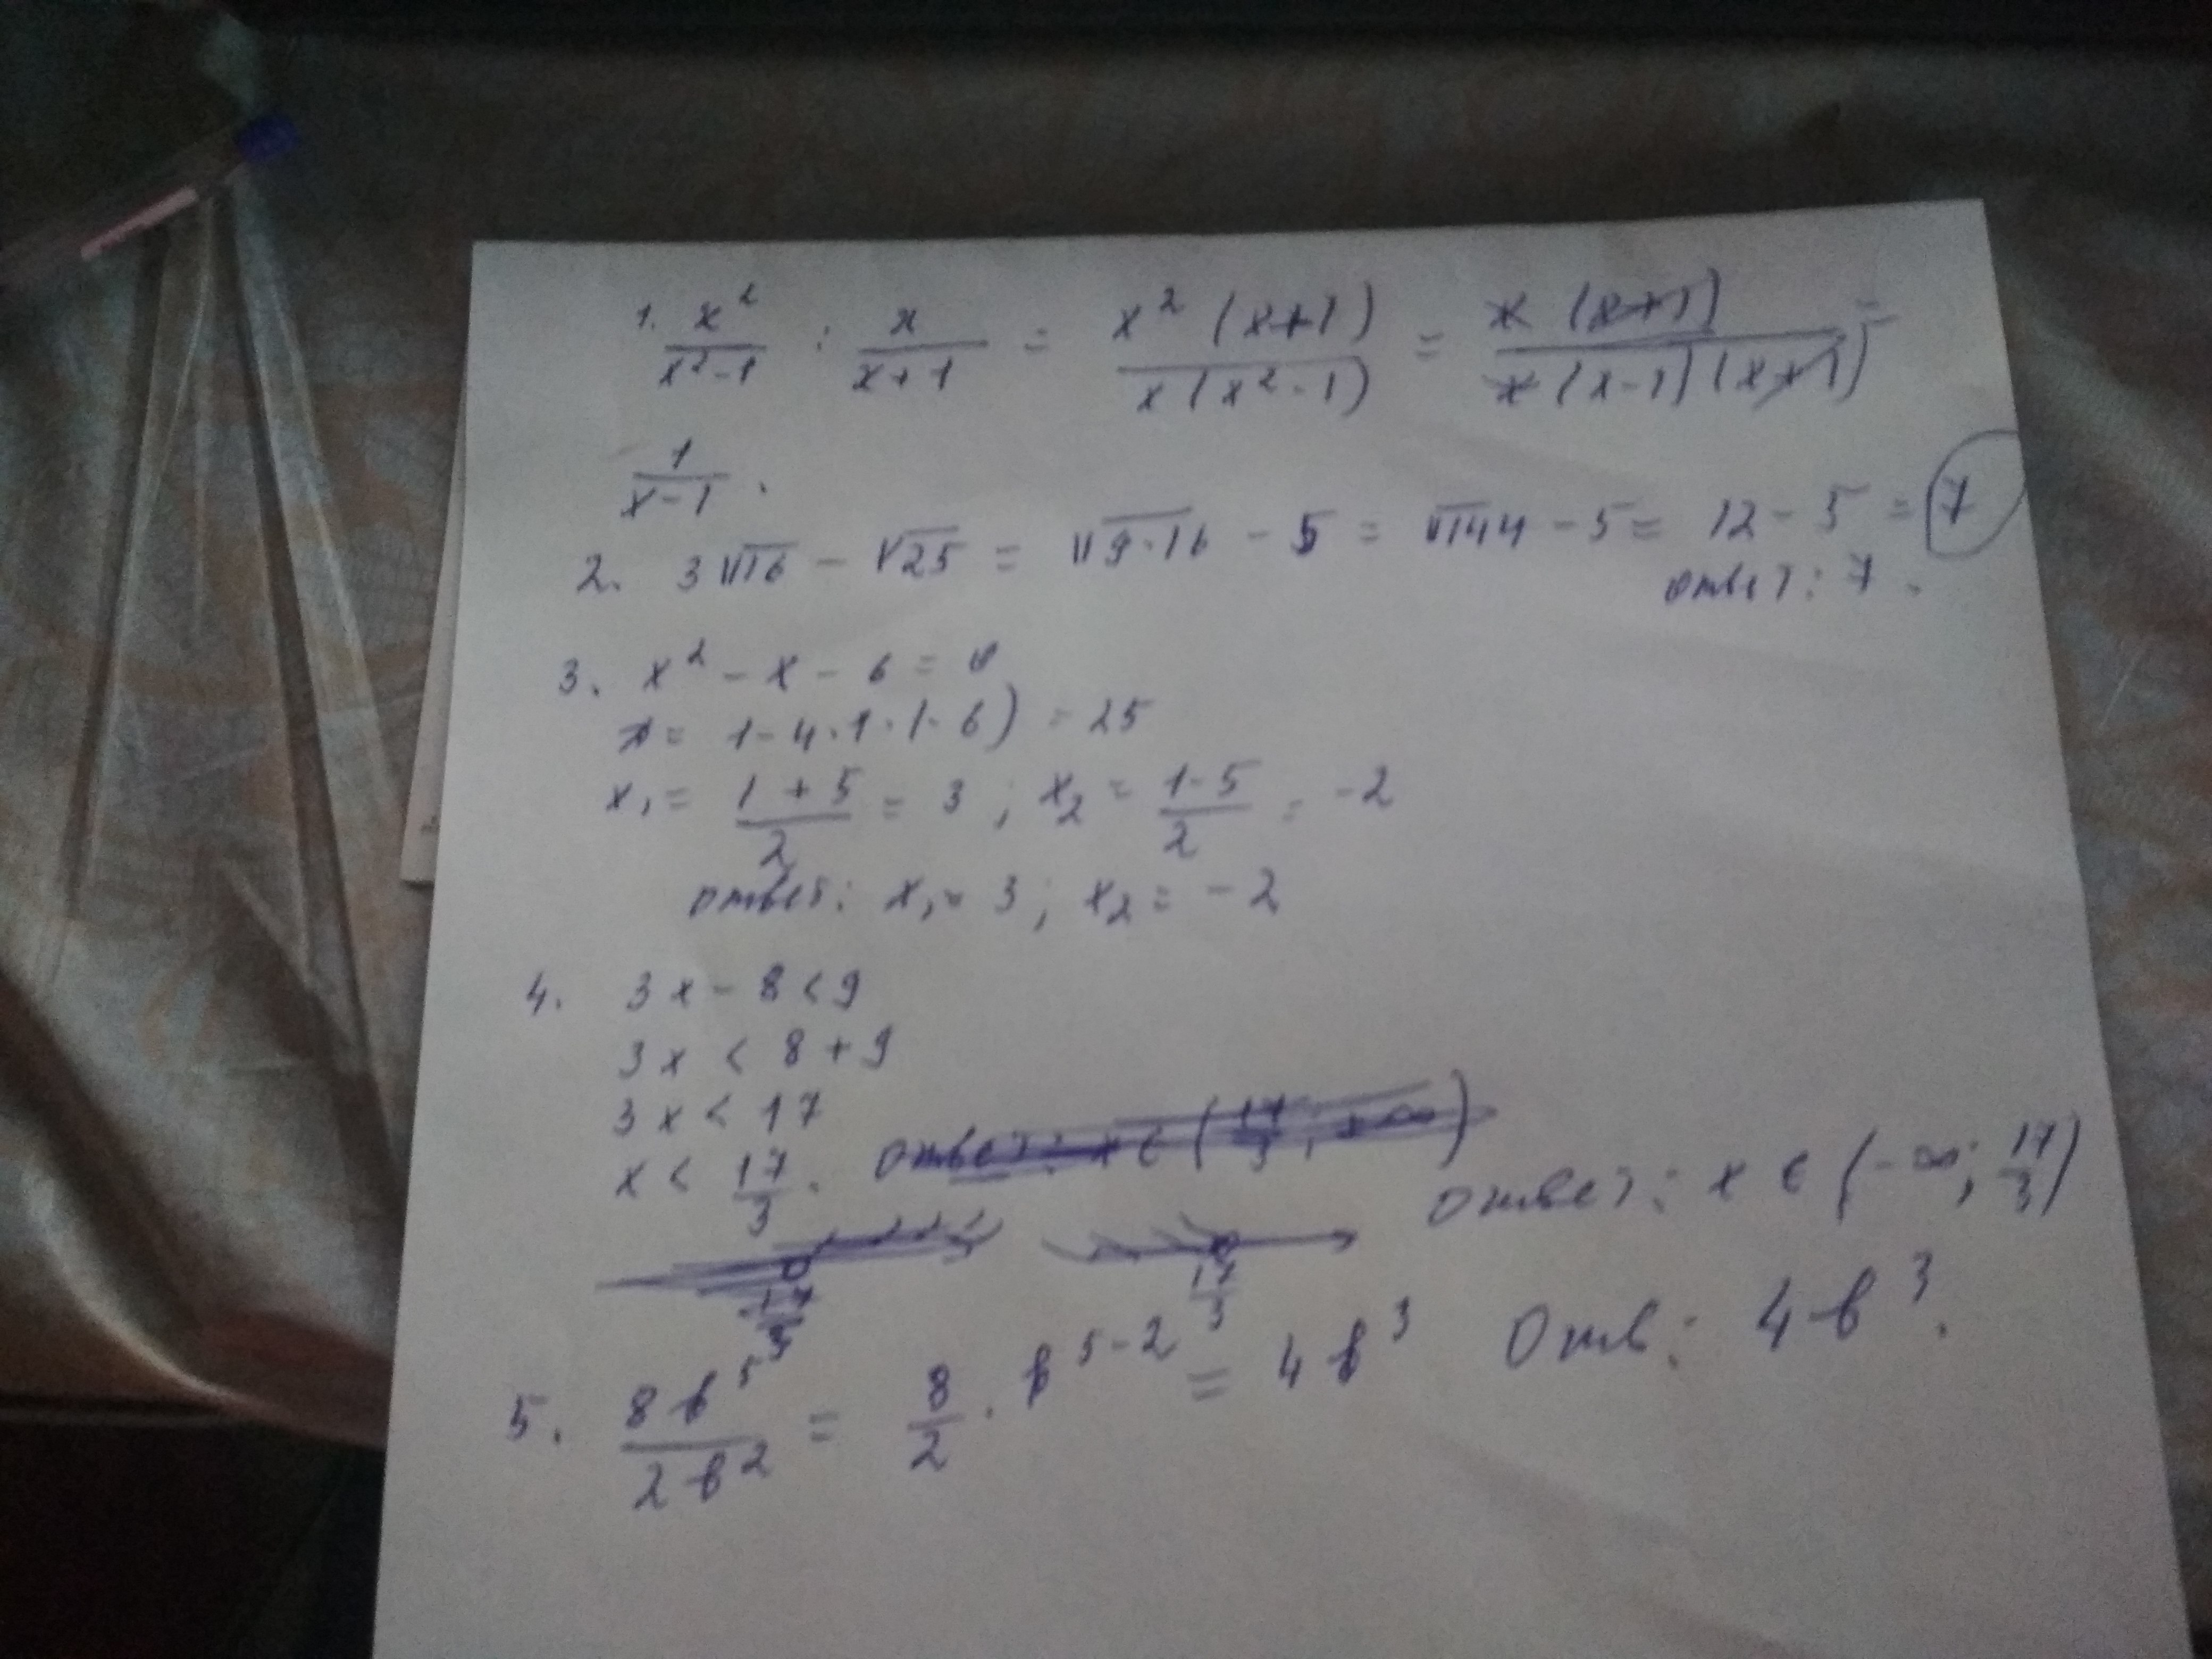 1. x²/(x²-1) : x/(x+1) = x²(x+1)/(x(x²-1)) = x(x+1)/(x(x-1)(x+1)) =
1/(x-1).
2. 3√16 - √25 = √9·16 - 5 = √144 - 5 = 12 - 5 = 7
ответ: 7.
3. x² - x - 6 = 0
D = 1-4·1·(-6) = 25
x₁ = (1+5)/2 = 3; x₂ = (1-5)/2 = -2
ответ: x₁ = 3; x₂ = -2
4. 3x - 8 < 9
3x < 8 + 9
3x < 17
x < 17/3. ответ: x ∈ (17/3; +∞)
ответ: x ∈ (-∞; 17/3)
17/3 17/3
5. 8b⁵/2b² = 8/2 · b⁵⁻² = 4b³ Отв: 4b³.